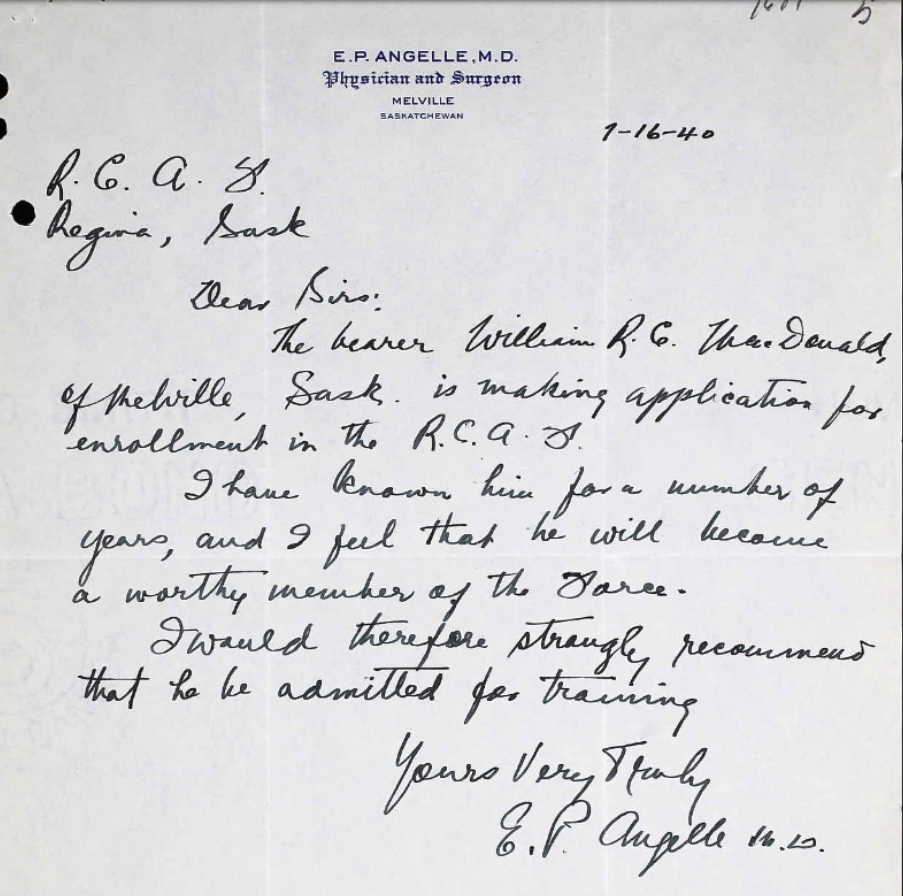 E.P. ANGELLE, M.D.
Physician and Surgeon
MELVILLE
SASKATCHEWAN
7-16-40
R. C. A. F.
Regina, Sask
Dear Sirs:
The bearer William R. C. MacDonald,
of Melville, Sask. is making application for
enrollment in the R.C.A.F.
I have known him for a number of
years, and I feel that he will become
a worthy member of the Force.
I would therefore strongly recommend
that he be admitted for training
Yours Very Truly
E.P. Angelle M.D.